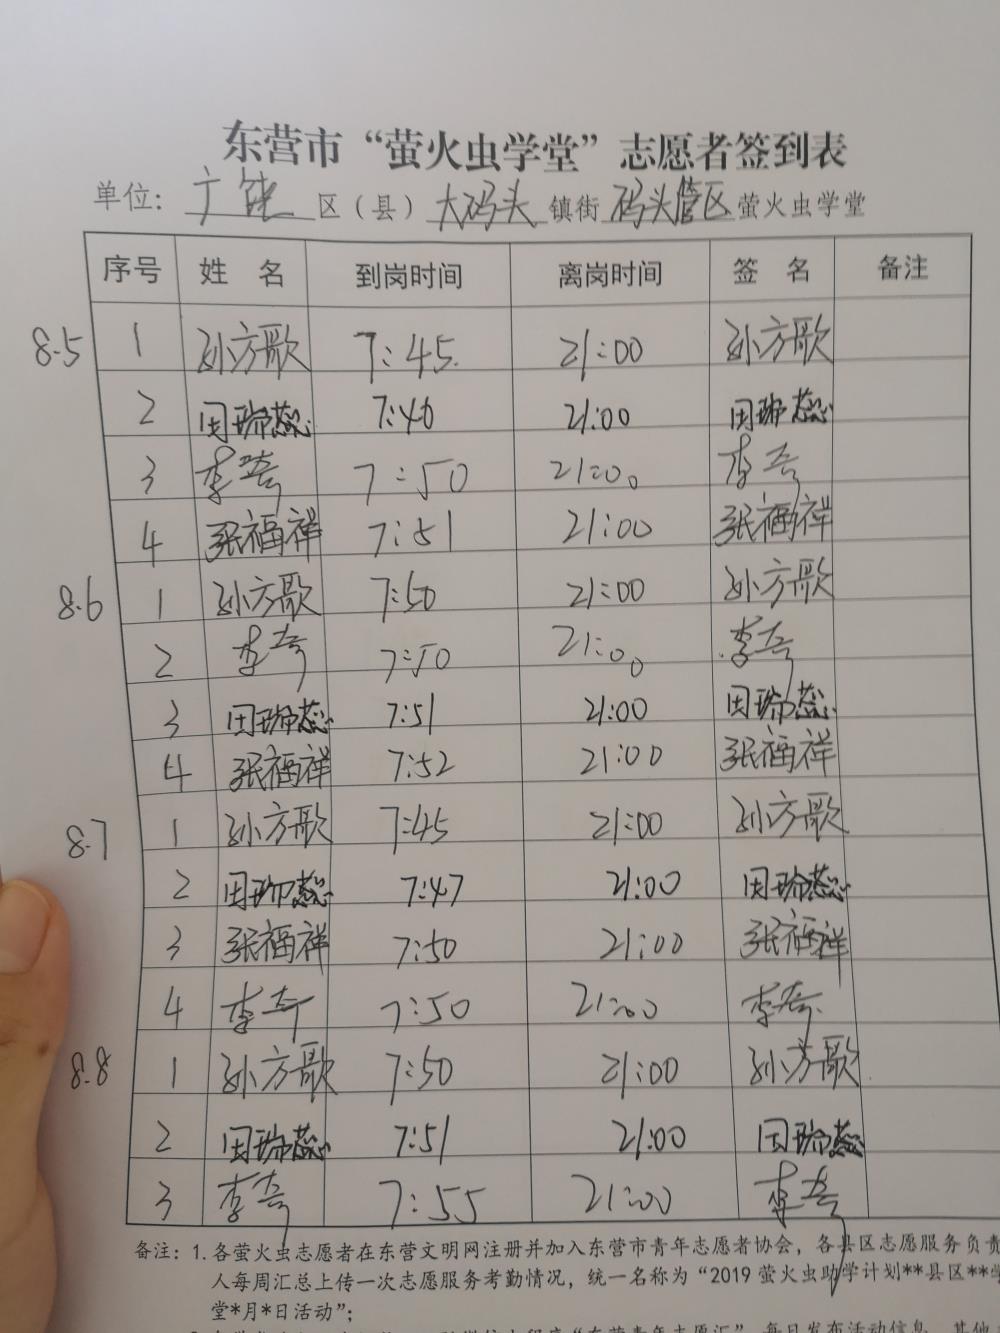 东营市“萤火虫学堂”志愿者签到表
单位: 广饶 区（县） 大码头 镇街 码头管区 萤火虫学堂
序号 姓名 到岗时间 离岗时间 签名 备注
8.5 1 孙方歌 7:45 21:00 孙方歌
2 田瑞蕊 7:46 21:00 田瑞蕊
3 李奇 7:50 21:00 李奇
4 张福祥 7:51 21:00 张福祥
8.6 1 孙方歌 7:50 21:00 孙方歌
2 李奇 7:50 21:00 李奇
3 田瑞蕊 7:51 21:00 田瑞蕊
4 张福祥 7:52 21:00 张福祥
8.7 1 孙方歌 7:45 21:00 孙方歌
2 田瑞蕊 7:47 21:00 田瑞蕊
3 张福祥 7:50 21:00 张福祥
4 李奇 7:50 21:00 李奇
8.8 1 孙方歌 7:50 21:00 孙方歌
2 田瑞蕊 7:51 21:00 田瑞蕊
3 李奇 7:55 21:00 李奇
备注: 1. 各萤火虫志愿者在东营文明网注册并加入东营市青年志愿者协会，各县区志愿服务负责
人每周汇总上传一次志愿服务考勤情况，统一名称为“2019萤火虫助学计划**县区**学
堂*月*日活动”;
“东营青年志愿汇”，每日发布活动信息，其他